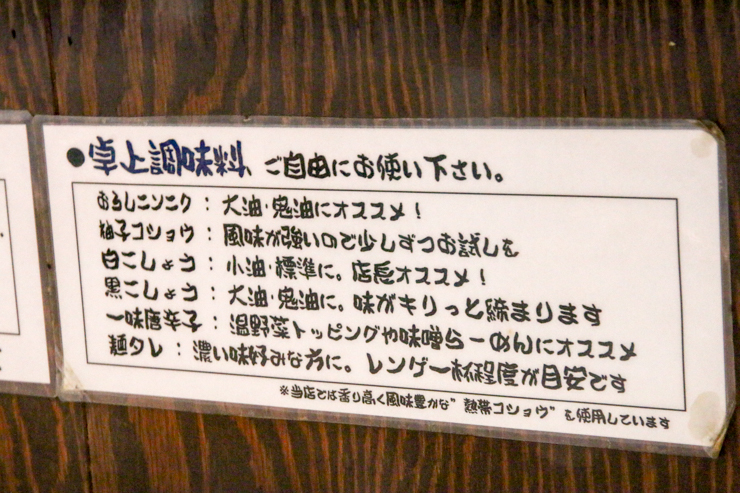 ●卓上調味料 ご自由にお使い下さい。
おろしニンニク：大油・鬼油にオススメ！
柚子コショウ：風味が強いので少しずつお試しを
白こしょう：小油・標準に。店長オススメ！
黒こしょう：大油・鬼油に。味がキリっと締まります
一味唐辛子：温野菜トッピングや味噌らーめんにオススメ
麺タレ：濃い味好みな方に。レンゲ一杯程度が目安です
※当店では香り高く風味豊かな"熱帯コショウ"を使用しています